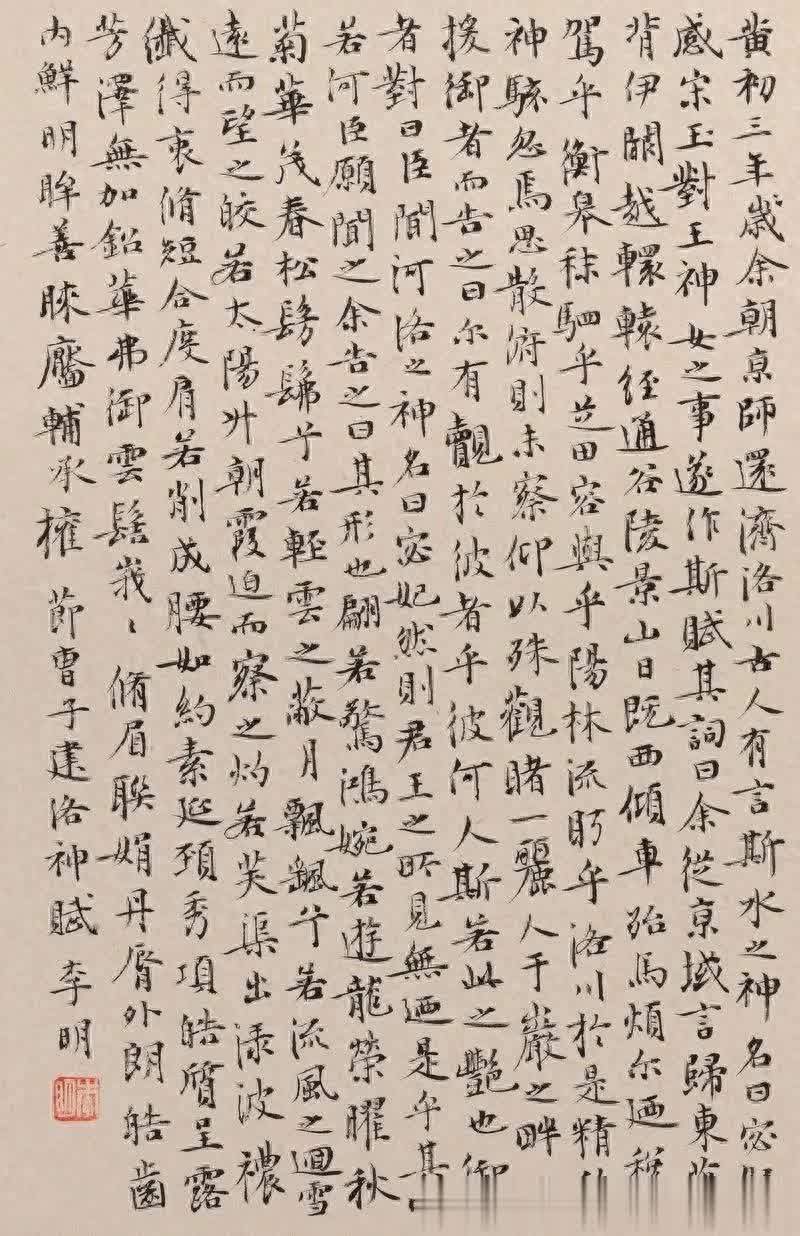 黄初三年歲余朝京師還濟洛川古人有言斯水之神名曰宓
感宋玉對王神女之事遂作斯賦其詞曰余從京域言歸東
背伊闕越轘轅經通谷陵景山日既西傾車殆馬煩尔廼稅
駕乎衡皋秣駟乎芝田容與乎陽林流眄乎洛川於是精
神駭忽焉思散俯則未察仰以殊觀睹一麗人于巖之畔
援御者而告之曰尔有覿於彼者乎彼何人斯若此之艷也御
者對曰臣聞河洛之神名曰宓妃然則君王之所見無廼是乎其
若何臣願聞之余告之曰其形也翩若驚鴻婉若遊龍榮曜秋
菊華茂春松髣髴兮若輕雲之蔽月飄飖兮若流風之迴雪
遠而望之皎若太陽升朝霞迫而察之灼若芙渠出淥波襛
纖得衷脩短合度肩若削成腰如約素延頸秀項皓質呈露
芳澤無加鉛華弗御雲髻峩〻脩眉聯娟丹脣外朗皓齒
內鮮明眸善睞靨輔承權 節曹子建洛神賦 李明